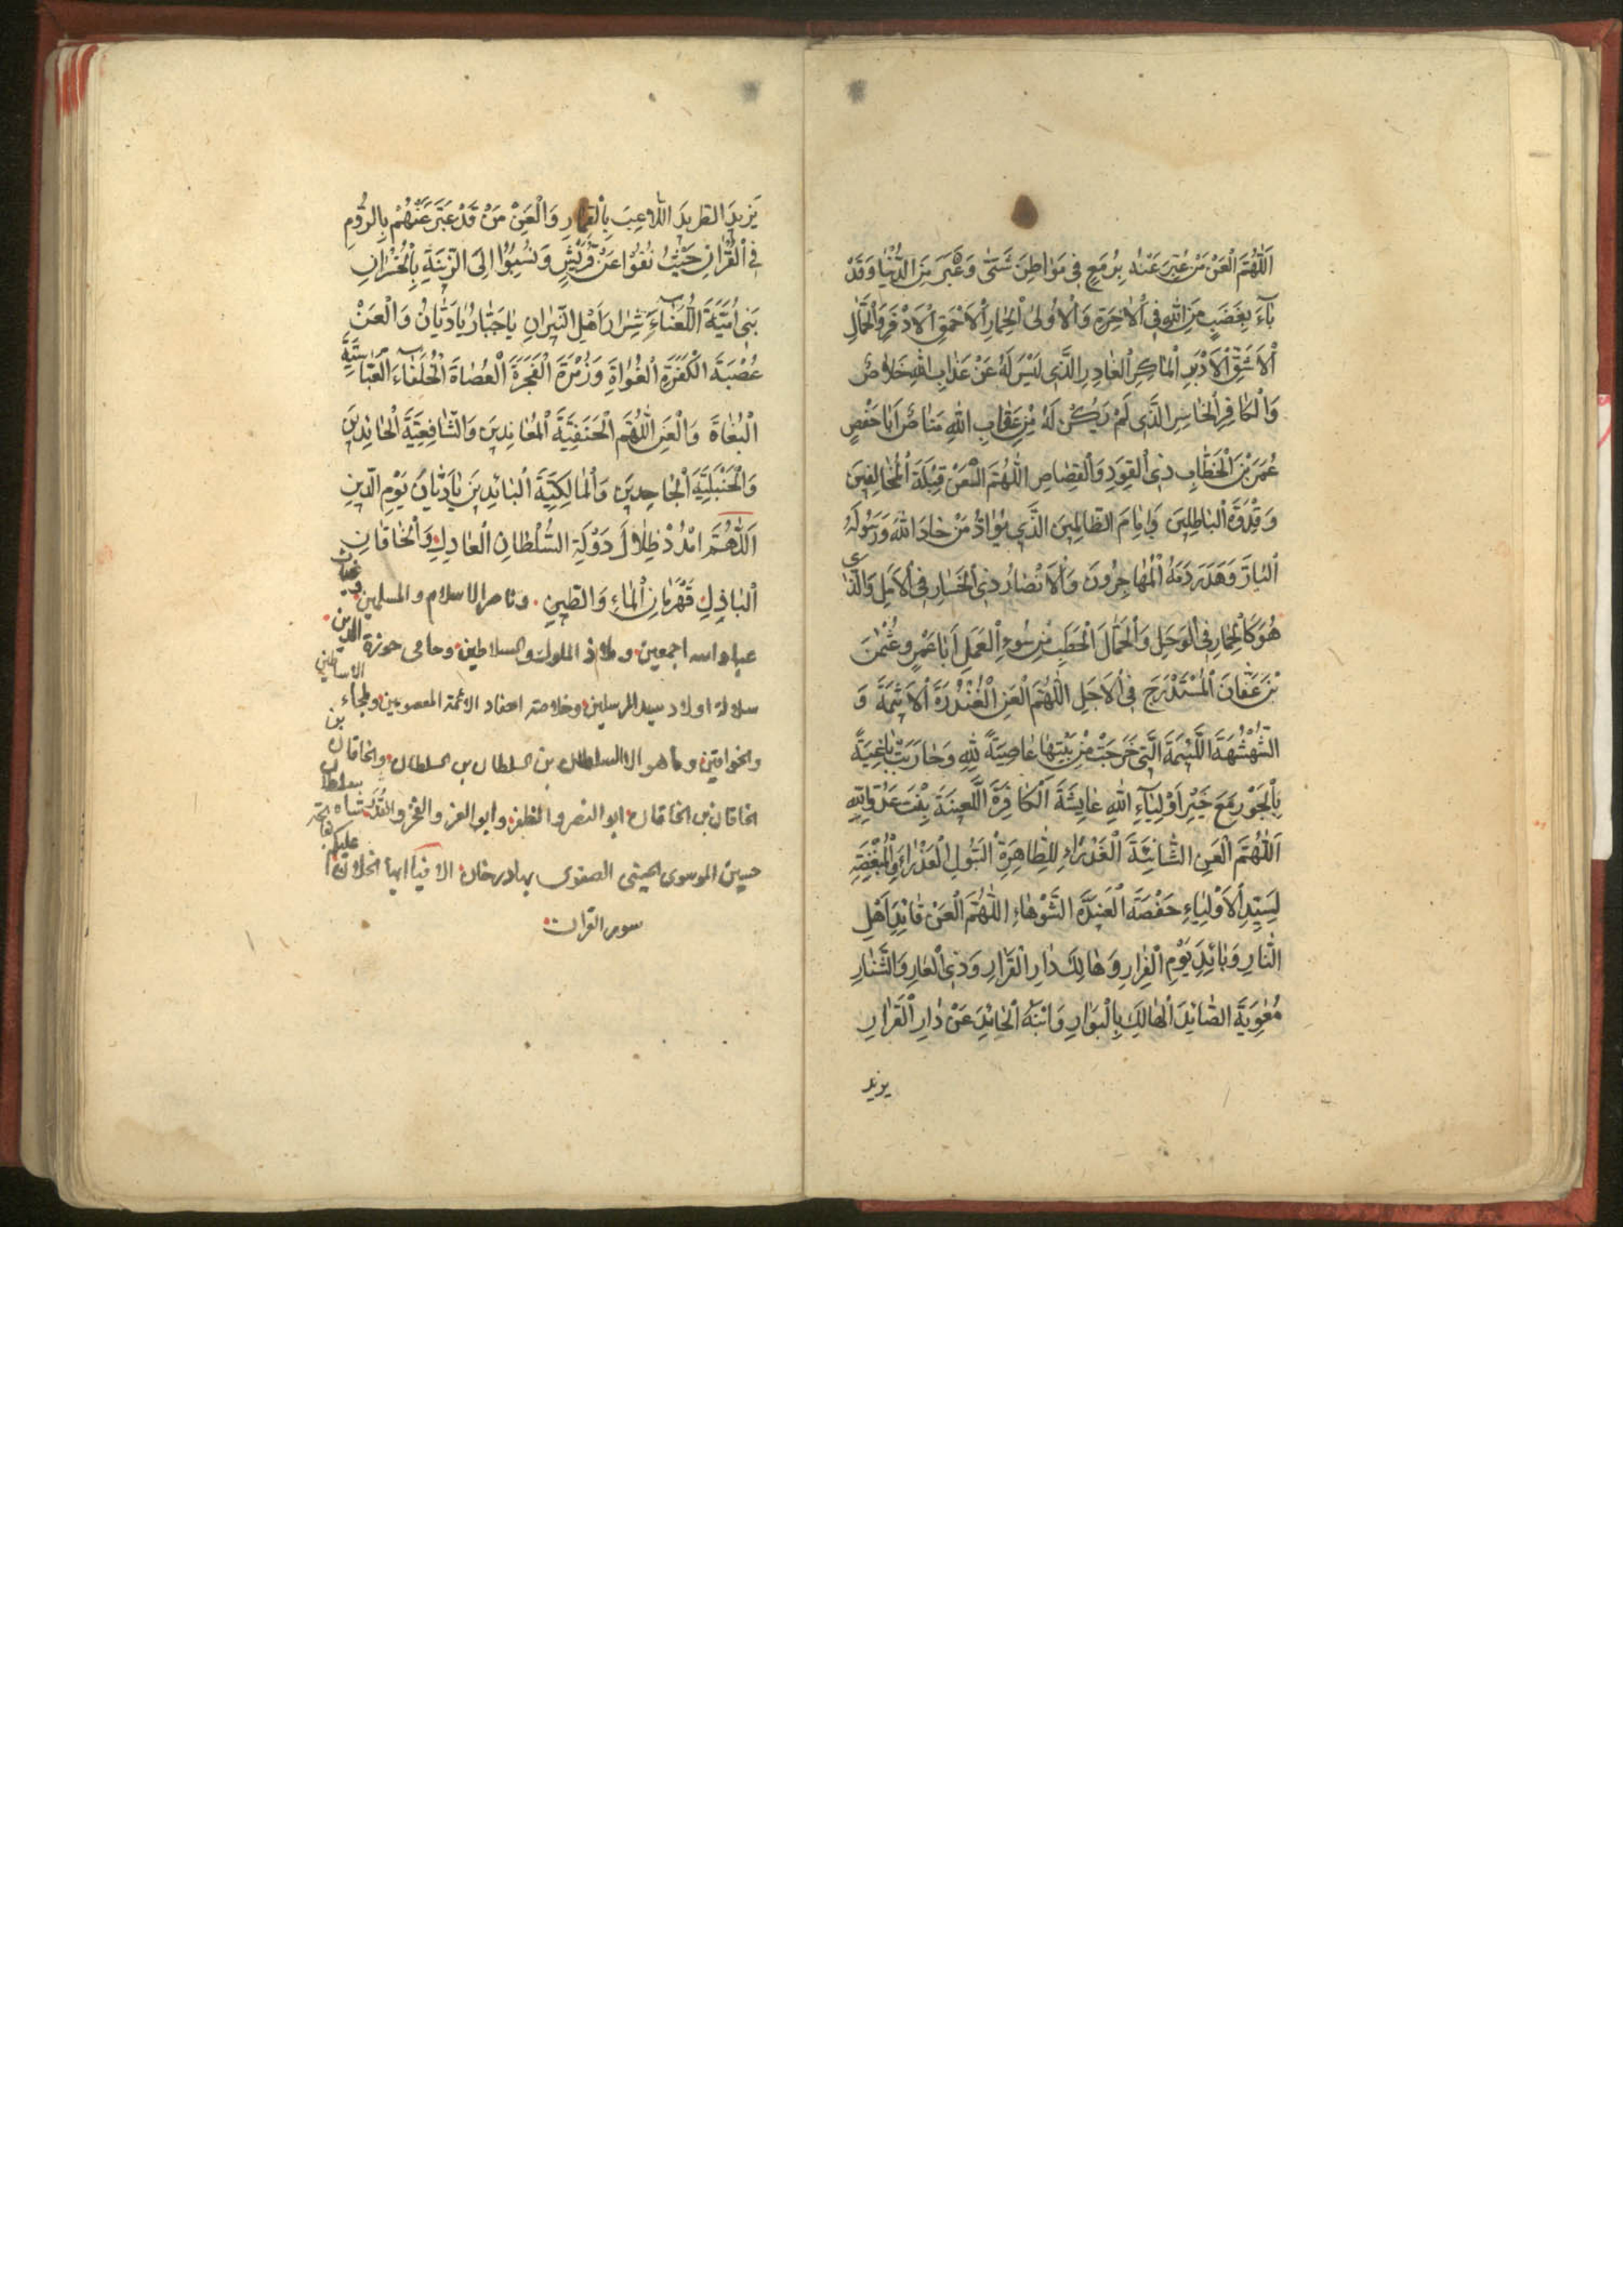 اَللّٰهُمَّ الْعَنْ مَنْ عُبِرَ عَنْهُ بِرُمَعٍ فِي مَوَاطِنَ شَتّٰى وَعَبَرَ مِنَ الدُّنْيَا وَقَدْ
بَآءَ بِغَضَبٍ مِنَ اللّٰهِ فِي الْاٰخِرَةِ وَالْاُولٰى الْحِمَارِ الْاَحْمَقِ الْاَدْفَرِ وَالْجَمَالِ
الْاَشَقِّ الْاَدْبَرِ الْمَاكِرِ الْغَادِرِ الَّذِي لَيْسَ لَهُ عَنْ عَذَابِ اللّٰهِ خَلَاصٌ
وَالْكَافِرِ الْخَاسِرِ الَّذِي لَمْ يَكُنْ لَهُ مِنْ عِقَابِ اللّٰهِ مَنَاصٌ اَبَا حَفْصٍ
عُمَرَ بْنَ الْخَطَّابِ ذِي الْقِوَدِ وَالْقِصَاصِ اَللّٰهُمَّ الْعَنْ قِبْلَةَ الْمُخَالِفِينَ
وَقِدْوَةَ الْبَاطِلِينَ وَاِمَامَ الظَّالِمِينَ الَّذِي يُوَادُّ مَنْ حَادَ اللّٰهَ وَرَسُولَهُ
الْبَارَّ وَهَدَرَ دَمَهُ الْمُهَاجِرُونَ وَالْاَنْصَارُ ذِي الْخَسَارِ فِي الْاَمَلِ وَالَّذِي
هُوَ كَالْحِمَارِ فِي الْوَحَلِ وَالْحَمَّالَ الْحَطَبِ مِنْ سُوءِ الْعَمَلِ اَبَا عَمْرٍو عُثْمٰنَ
بْنَ عَفَّانَ الْمُسْتَدْرَجَ فِي الْاَجَلِ اَللّٰهُمَّ الْعَنِ الْغُنْدُرَةَ الْاَثِمَةَ وَ
الشُّهْشُهَةَ اللَّئِيمَةَ الَّتِي خَرَجَتْ مِنْ بَيْتِهَا عَاصِيَةً لِلّٰهِ وَحَارَبَتْ بَاغِيَةً
بِالْجَوْرِ مَعَ خَيْرِ اَوْلِيَآءِ اللّٰهِ عَايِشَةَ الْكَافِرَةَ اللَّعِينَةَ بِنْتَ عَدُوِّ اللّٰهِ
اَللّٰهُمَّ الْعَنِ الشَّانِئَةَ الْغَدْرَاءَ لِلطَّاهِرَةِ الْبَتُولِ الْعَذْرَاءِ وَالْمُبْغِضَةِ
لِسَيِّدِ الْاَوْلِيَاءِ حَفْصَةَ الْعَنِيدَةَ الشَّوْهَاءَ اَللّٰهُمَّ الْعَنْ قَائِدَ اَهْلِ
النَّارِ وَبَائِدَ يَوْمِ الْفِرَارِ وَهَالِكَ دَارِ الْقَرَارِ وَذِي الْعَارِ وَالشَّنَارِ
مُعٰوِيَةَ الصَّائِدَ الْهَالِكَ بِالْبَوَارِ وَابْنَهُ الْحَائِدَ عَنْ دَارِ الْقَرَارِ
يزيد
يَزِيدَ الطَّرِيدَ اللَّاعِبَ بِالْقِمَارِ وَالْعَنْ مَنْ قَدْ عَبَّرَ عَنْهُمْ بِالرُّومِ
فِي الْقُرْاٰنِ حَيْثُ نُفُوا عَنْ قُرَيْشٍ وَنُسِبُوا اِلَى الزِّنْيَةِ بِالْخُسْرَانِ
بَنِي اُمَيَّةَ اللُّعَنَاءَ شِرَارَ اَهْلِ النِّيرَانِ يَا جَبَّارُ يَا دَيَّانُ وَالْعَنْ
عُصْبَةَ الْكَفَرَةِ الْغُوَاةِ وَزُمْرَةَ الْفَجَرَةِ الْعُصَاةَ الْخُلَفَاءَ الْعَبَّاسِيَّةَ
الْبُغَاةَ وَالْعَنِ اللّٰهُمَّ الْحَنَفِيَّةَ الْمُعَانِدِينَ وَالشَّافِعِيَّةَ الْحَائِدِينَ
وَالْحَنْبَلِيَّةَ الْجَاحِدِينَ وَالْمَالِكِيَّةَ الْبَائِدِينَ يَا دَيَّانُ يَوْمِ الدِّينِ
اَللّٰهُمَّ امْدُدْ ظِلَالَ دَوْلَةِ السُّلْطَانِ الْعَادِلِ وَالْخَاقَانِ
الْبَاذِلِ قَهْرَمَانِ الْمَاءِ وَالطِّينِ وناصر الاسلام والمسلمين غياث
عباد الله اجمعين وملاذ الملوك والسلاطين وحامى حوزة الدين
سلالة اولاد سيد المرسلين وخلاصة احفاد الائمة المعصومين وملجاء الاساطين
والخواقين وما هو الا السلطان بن السلطان بن السلطان والخاقان بن
الخاقان بن الخاقان ابو النصر والمظفر وابو العز والفخر شاه سلطان
حسين الموسوى الحسينى الصفوى بهادر خان الا فيا ايها الخلان عليكم
سور القران